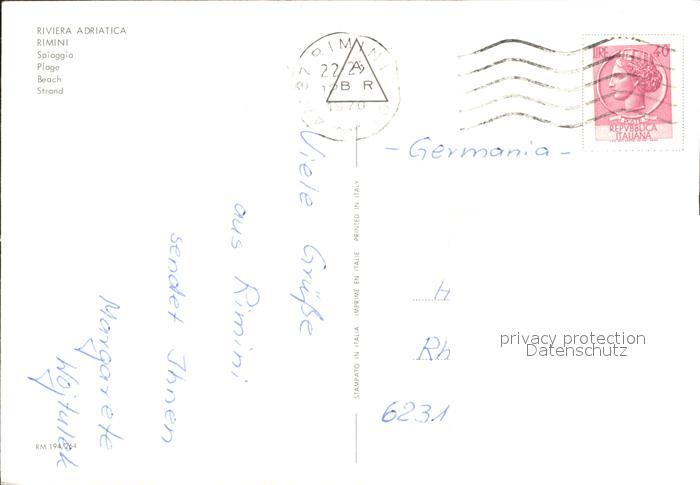 RIVIERA ADRIATICA
RIMINI
Spiaggia
Plage
Beach
Strand
RIMINI
22-23
A
BR
1970
LIRE 40
POSTE
REPVBBLICA
ITALIANA
- Germania -
Viele Grüße
aus Rimini
sendet Ihnen
Margarete
STAMPATO IN ITALIA IMPRIMÉ EN ITALIE PRINTED IN ITALY
H
Rh
6231
privacy protection
Datenschutz
RM 194/264